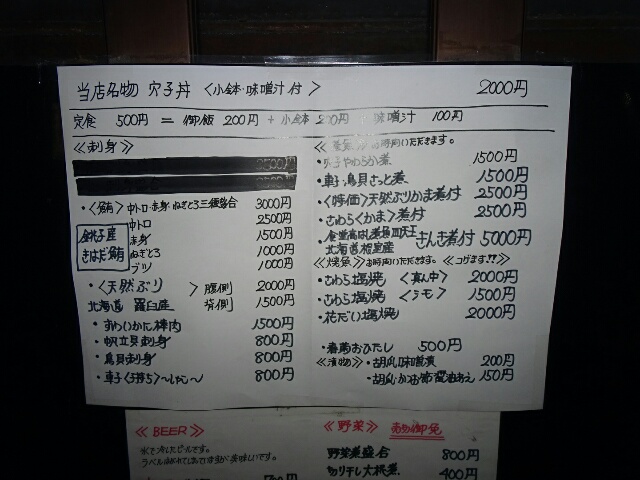 当店名物 穴子丼 〈小鉢・味噌汁付〉 2000円
定食 500円 = 御飯 200円 + 小鉢 200円 + 味噌汁 100円
≪刺身≫
・〈鮪〉中トロ・赤身・ねぎとろ三種盛合 3000円
中トロ 2500円
赤身 1500円
ねぎとろ 1000円
ブツ 1000円
銚子産
きはだ鮪
・〈天然ぶり〉腹側 2000円
北海道 羅臼産 背側 1500円
・ずわいかに棒肉 1500円
・帆立貝刺身 800円
・鳥貝刺身 800円
・車子〈子持ち〉~しゃこ~ 800円
お時間いただきます。
・穴子やわらか煮 1500円
・車子、鳥貝さっと煮 1500円
・〈特価〉天然ぶりかま煮付 2500円
・さわら〈かま〉煮付 2500円
北海道 きんき煮付 5000円
≪焼魚≫お時間いただきます。≪コゲます!?≫
・さわら塩焼〈真ん中〉 2000円
・さわら塩焼〈シモ〉 1500円
・花だい塩焼 2000円
・春菊おひたし 500円
≪漬物≫・胡瓜味噌漬 200円
・胡瓜・かつお節醤油あえ 150円
≪BEER≫
氷で冷したビールです。
ラベルはがれてしまいますが美味しいです。
≪野菜≫ 売切御免
野菜煮盛合 800円
切り干し大根煮 400円